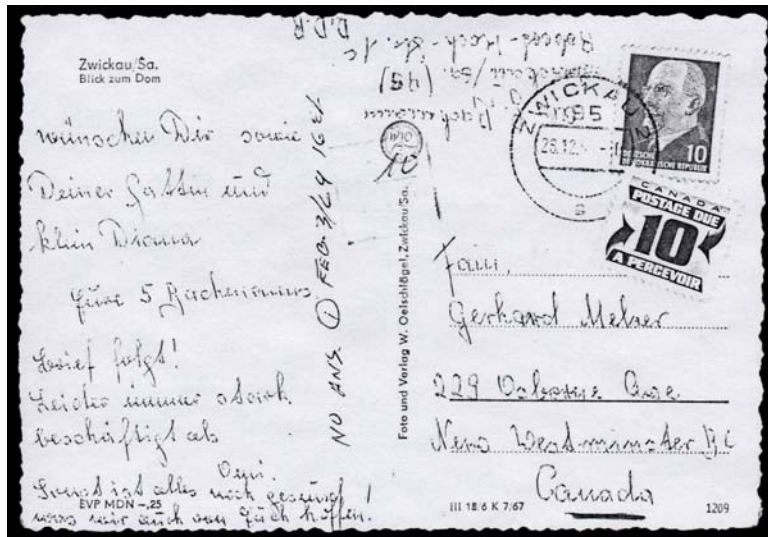 Zwickau/Sa.
Blick zum Dom
wünschen Dir sowie
Deiner Gattin und
klein Diana
Eure 5 Bachmanns
Brief folgt!
Leider immer stark
beschäftigt als
Sonst ist alles noch gesund!
was wir auch von Euch hoffen.
EVP MDN -,25
NO ANS. 1 FEB. 3/69
Foto und Verlag W. Oelschlägel, Zwickau/Sa.
D.D.R.
Robert-Koch-Str. 1c
Zwickau/Sa.
Bachmann
ZWICKAU 2
95
DEUTSCHE
DEMOKRATISCHE REPUBLIK
10
CANADA
POSTAGE DUE
10
A PERCEVOIR
10
Fam.
Gerhard Melzer
229 Osborne Ave.
New Westminster BC
Canada
III 18/6 K 7/67
1209